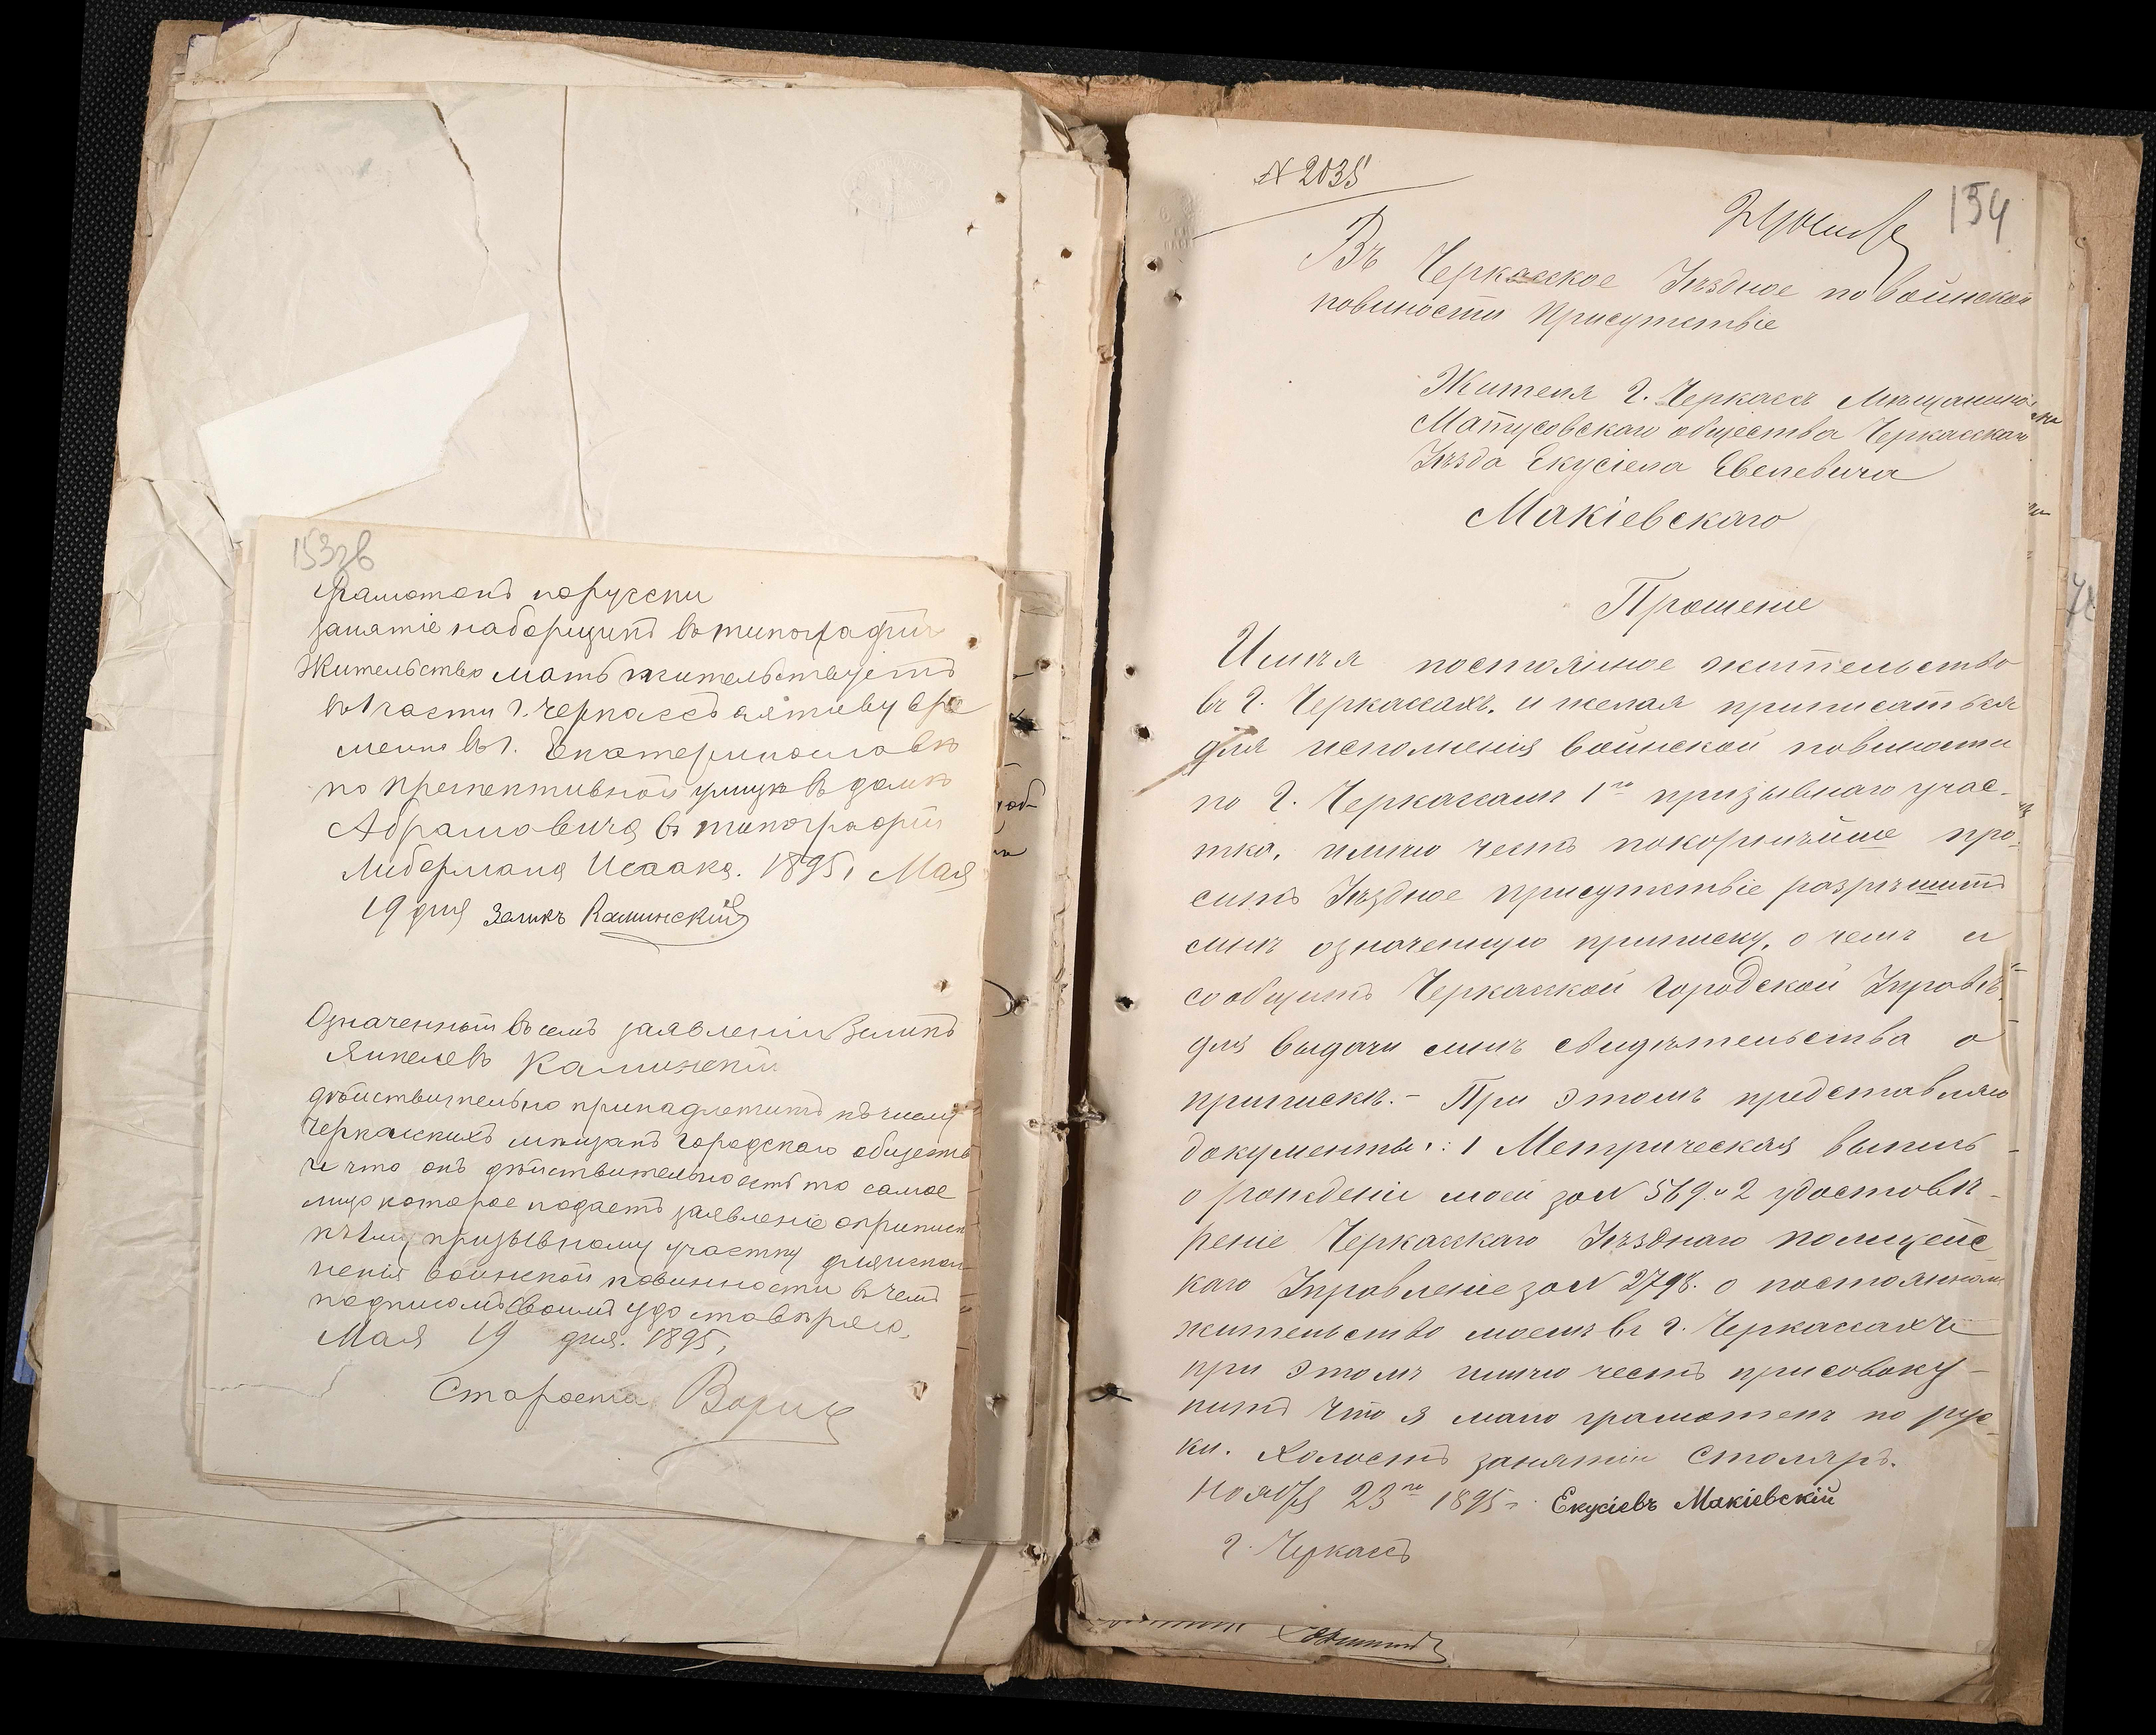 153зв
Грамотенъ порусски
занятіе наборщикъ въ типографіи
Жительство мать жительствуетъ
въ 1 части г. Черкассъ а я живу вре
менно въ г. Екатеринославѣ
по проспективной улицѣ въ домѣ
Абрамовича въ типографіи
Либермана Исаака. 1895 г. Мая
19 дня Зеликъ Каминскій
Означенный въ семъ заявленіи Зеликъ
Янкелевъ Каминскій
дѣйствительно принадлежитъ къ числу
Черкасскихъ мѣщанъ городскаго общества
и что онъ дѣйствительно есть то самое
лицо которое подаетъ заявленіе о припискѣ
къ 1му призывному участку для испол
ненія воинской повинности въ чемъ
подписомъ своимъ удостовѣряю.
Мая 19 дня. 1895 г.
Староста
N 2035
154
Въ Черкасское Уѣздное по воинской
повиности Присутствіе
Жителя г. Черкассъ Мѣщанина
Матусовскаго общества Черкасскаго
Уѣзда Екусіела Евелевича
Макіевскаго
Прошеніе
Имѣя постоянное жительство
въ г. Черкассахъ, и желая приписаться
для исполненія воинской повиности
по г. Черкассамъ 1го призывнаго учас-
тка, имѣю честь покорнѣйше про-
сить Уѣздное присутствіе разрѣшить
мнѣ означенную приписку, о чемъ и
сообщить Черкасской Городской Управѣ
для выдачи мнѣ свидѣтельства о
припискѣ. - При этомъ представляю
документы: 1 Метрическая выпись
о рожденіи моей за N 569. и 2 удостовѣ-
реніе Черкасскаго Уѣзднаго полицейс
каго Управленіе за N 2798. о постоянномъ
жительство моемъ въ г. Черкассахъ
при этомъ имѣю честь присовоку-
пить что я мало грамотенъ по рус-
ки. Холостъ занятіи Столяръ.
Ноября 23го 1895 г. Екусіевъ Макіевскій
г. Черкассъ